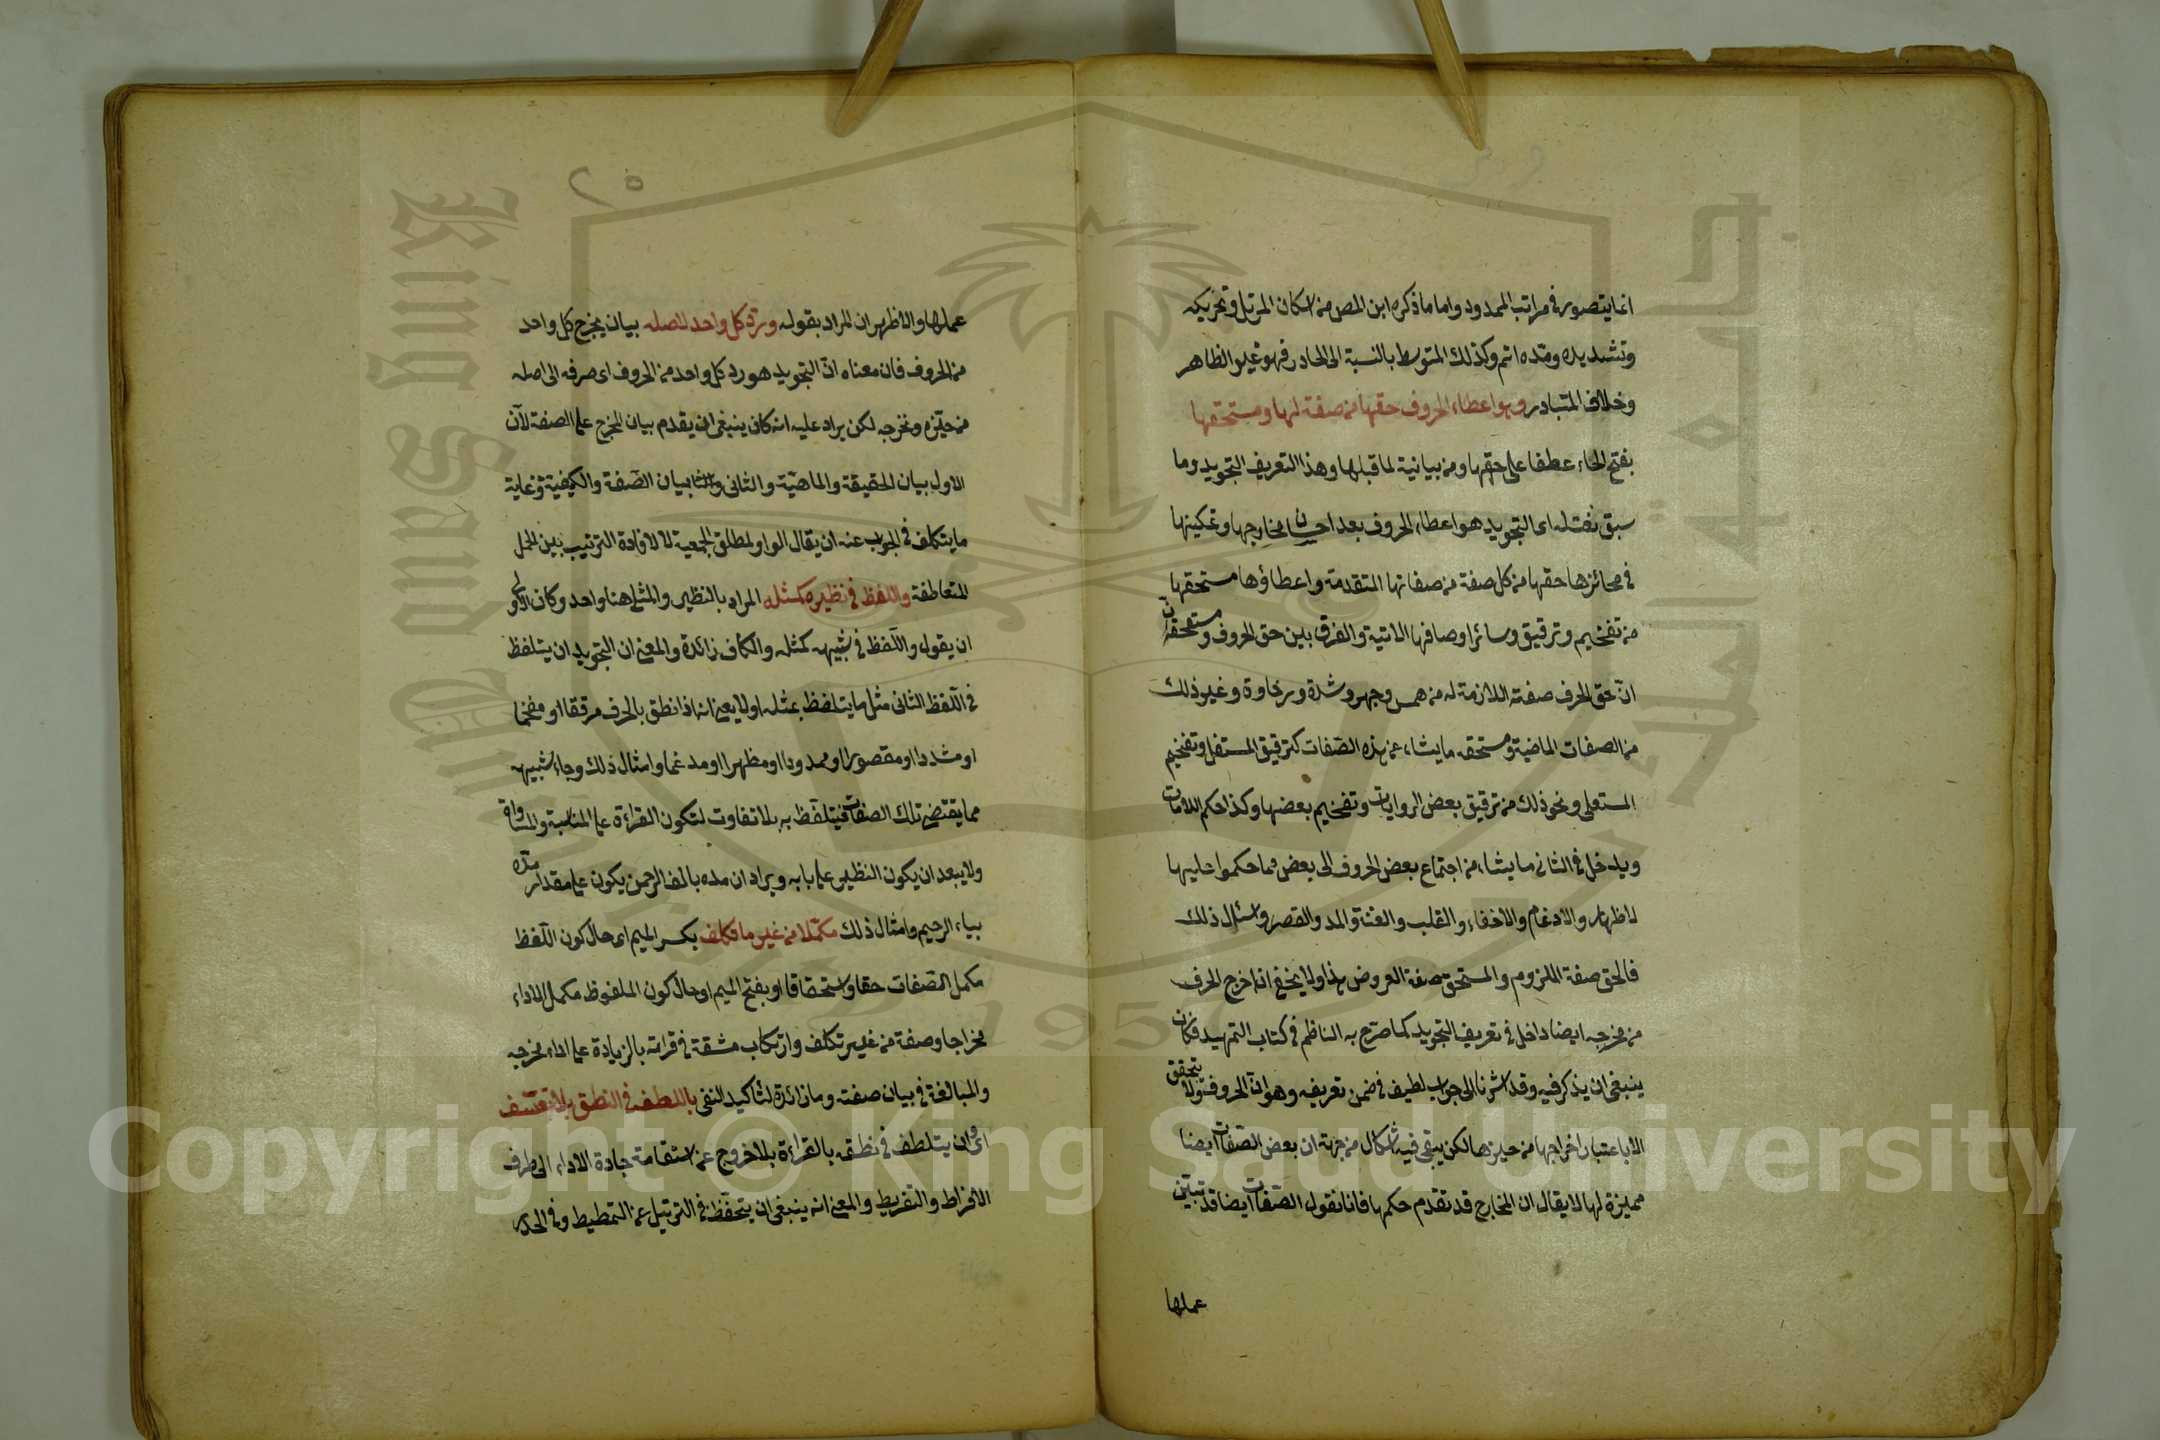 انما يتصور في مراتب الممدود واما ما ذكره ابن المص من اسكان المرتل وتحريكه
وتشديده ومده اتم وكذلك المتوسط بالنسبة الى الحادر فهو غير الظاهر
وخلاف المتبادر وهو اعطاء الحروف حقها من صفة لها ومستحقها
بفتح الحاء عطفا على حقها ومن بيانية لما قبلها وهذا التعريف التجويد وما
سبق اى التجويد هو اعطاء الحروف بعد احسان مخارجها وتمكينها
في محائزها حقها من كل صفة من صفاتها المتقدمة واعطاؤها مستحقها
من تفخيم وترقيق وسائر اوصافها الاتية والفرق بين حق الحروف ومستحقها
ان حق الحرف صفته اللازمة له من همس وجهر وشدة ورخاوة وغير ذلك
من الصفات الماضية ومستحقه ما ينشاء عن هذه الصفات كترقيق المستفل وتفخيم
المستعلى ونحو ذلك من ترقيق بعض الروايات وتفخيم بعضها وكذا حكم اللامات
ويدخل في الثانى ما ينشاء من اجتماع بعض الحروف الى بعض مما حكموا عليها
لاظهار والادغام والاخفاء والقلب والغنة والمد والقصر وامثال ذلك
فالحق صفة اللزوم والمستحق صفة العروض هذا ولا يخفى ان اخراج الحرف
من مخرجه ايضا داخل في تعريف التجويد كما صرح به الناظم في كتاب التمهيد فكان
ينبغى ان يذكر فيه وقد اشرنا الى جواب لطيف في ضمن تعريفه وهو ان الحروف لا يتحقق
الا باعتبار اخراجها من حيزها لكن يبقى فيه اشكال من جهة ان بعض الصفات ايضا
مميزة لها لا يقال ان المخارج قد تقدم حكمها فانا نقول الصفات ايضا قد تبين
عملها
٢٥
عملها والاظهر ان المراد بقوله ورد كل واحد لاصله بيان مخرج كل واحد
من الحروف فان معناه ان التجويد هو رد كل واحد من الحروف اى صرفه الى اصله
من حيزه ومخرجه لكن يراد عليه انه كان ينبغى ان يقدم بيان المخرج على الصفة لان
الاول بيان الحقيقة والماهية والثانى بيان الصفة والكيفية وغاية
ما يتكلف في الجواب عنه ان يقال الواو لمطلق الجمعية لا لافادة الترتيب بين الجمل
المتعاطفة واللفظ في نظيره كمثله المراد بالنظير والمثل هنا واحد وكان الاولى
ان يقول واللفظ في شبيهه كمثله والكاف زائدة والمعنى ان التجويد ان يتلفظ
في اللفظ الثانى مثل ما يتلفظ بمثله اولا يعنى انه اذا نطق بالحرف مرققا او مفخما
او مشددا او مقصورا او ممدودا او مظهرا او مدغما وامثال ذلك وجاء شبيهه
مما يقتضى تلك الصفات فيتلفظ به بلا تفاوت لتكون القراءة على المناسبة والمساواة
ولا يبعد ان يكون النظير على بابه ويراد ان مده بالف الرحمن يكون على مقدار مده
بياء الرحيم وامثال ذلك مكملا من غير ما تكلف بكسر الميم اى حال كون اللفظ
مكمل الصفات حقا واستحقاقا او بفتح الميم او حال كون الملفوظ مكمل الاداء
مخراجا وصفة من غير تكلف وارتكاب مشقة في قراءته بالزيادة على اداء مخرجه
والمبالغة في بيان صفته وما زائدة لتاكيد النفى باللطف في النطق بلا تعسف
اى وان يتلطف في نطقه بالقراءة بلا خروج عن استقامة جادة الاداء الى طرف
الافراط والتفريط والمعنى انه ينبغى ان يتحفظ في الترتيل عن التمطيط وفي الحدر
Copyright © King Saud University
1957